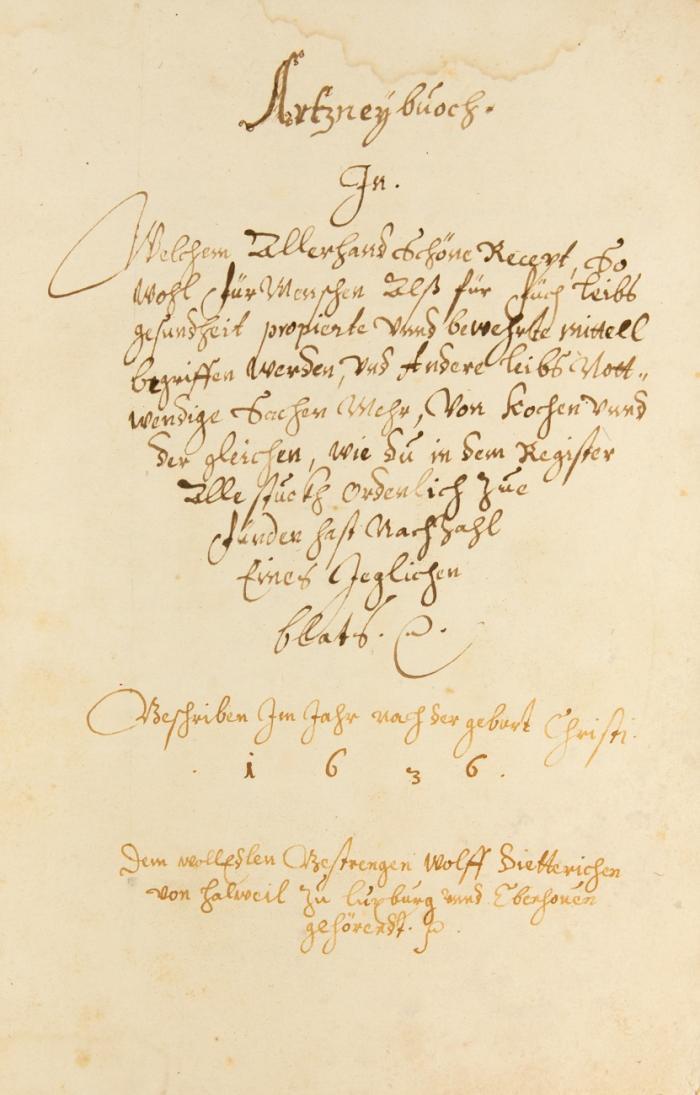 Artzneÿbuoch.
In.
Welchem Allerhand Schöne Recept, So
wohl für Menschen Alß für Füch leibs
gesundheit propierte vnnd bewehrte mittell
begriffen werden, vnd Andere leibs Nott-
wendige Sachen Mehr, Von Kochen vnnd
der gleichen, wie du in dem Register
Alle stuckh Ordenlich zue
finden hast Nach Zahl
Eines Jeglichen
blats.
Beschriben Im Jahr nach der geburt Christi.
1 6 3 6.
Dem wolledlen Gestrengen Wolff Dietterichen
von halweil zu luxburg vnnd Ebenhouen
gehörendt.